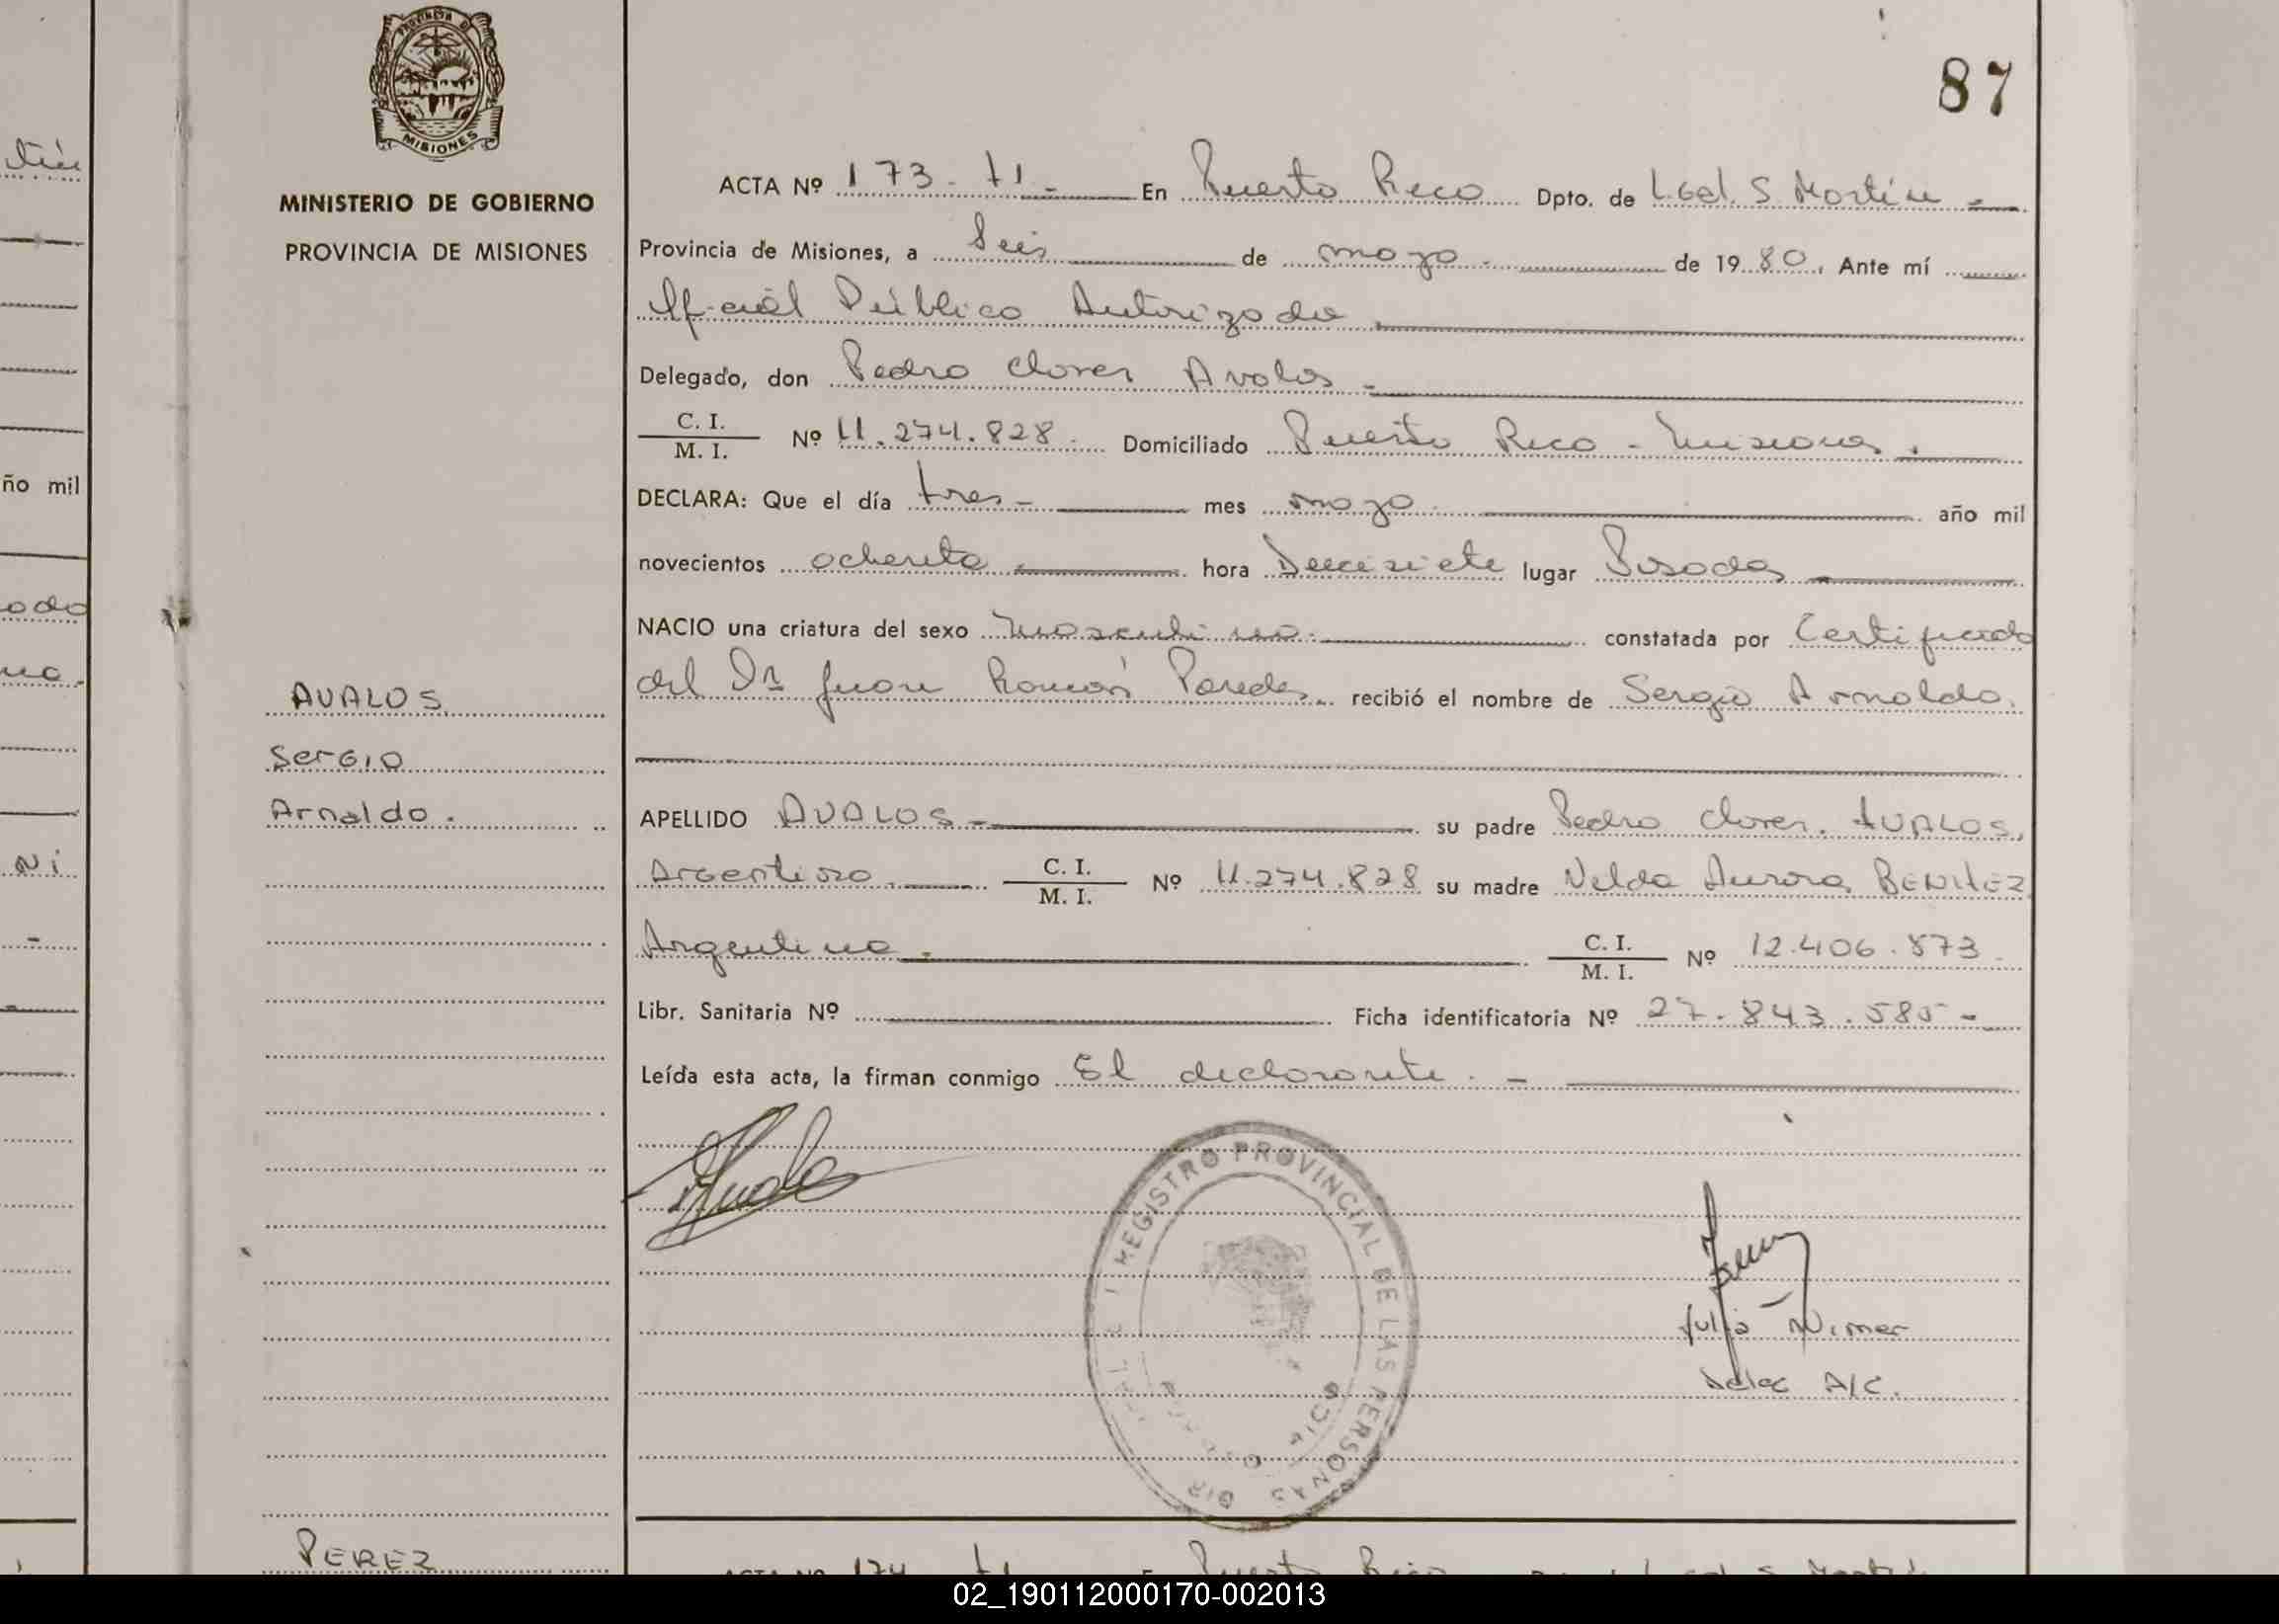 tín
ño mil
PROVINCIA DE
MISIONES
MINISTERIO DE GOBIERNO
PROVINCIA DE MISIONES
AVALOS
Sergio
Arnaldo.
PEREZ
87
ACTA Nº 173-t1- En Puerto Rico Dpto. de Lgdl. S. Martín -
Provincia de Misiones, a Seis de mayo de 1980, Ante mí
Oficial Público Autorizado
Delegado, don Pedro Claver Avalos -
C. I. / M. I. Nº 11.274.828 Domiciliado Puerto Rico - Misiones.
DECLARA: Que el día tres - mes mayo año mil
novecientos ochenta hora Diecisiete lugar Posadas
NACIO una criatura del sexo Masculino constatada por Certificado
del Dr Juan Román Paredes recibió el nombre de Sergio Arnaldo.
APELLIDO AVALOS - su padre Pedro Claver. AVALOS,
Argentino. C. I. / M. I. Nº 11.274.828 su madre Nelda Aurora BENITEZ
Argentina. C. I. / M. I. Nº 12.406.873
Libr. Sanitaria Nº Ficha identificatoria Nº 27.843.585-
Leída esta acta, la firman conmigo El declarante. -
REGISTRO PROVINCIAL DE LAS PERSONAS
RICO
DIR
Julia Nimer
Deleg A/C.
ACTA Nº 174 t1 - En Puerto Rico Lgdl S Martín
02_190112000170-002013